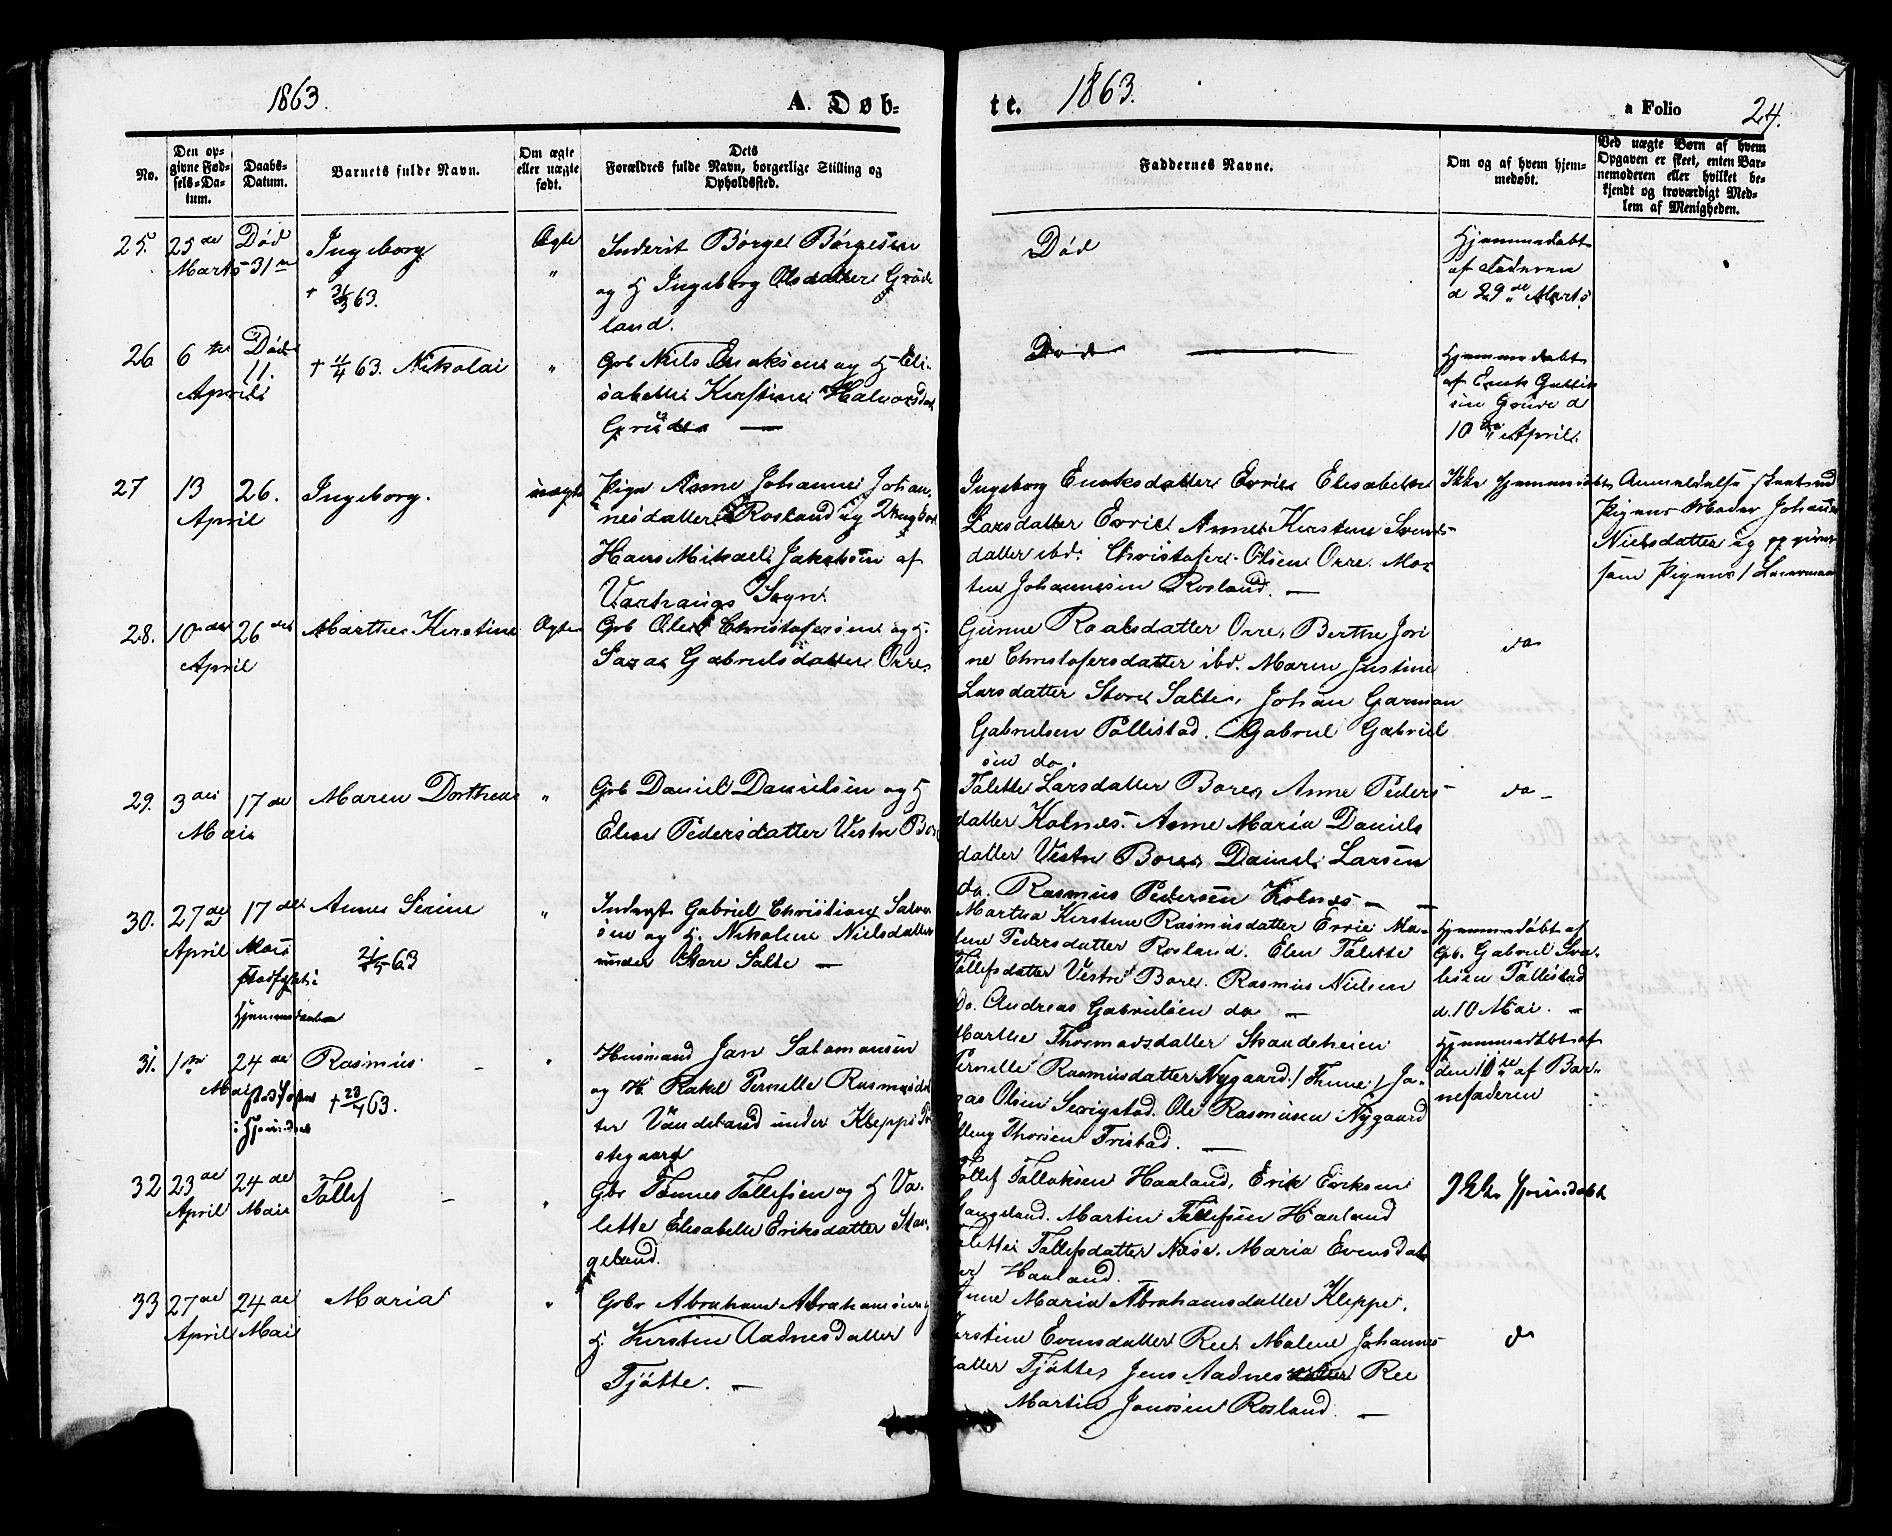 1863.
A. Døb-
te. 1863.
a Folio 24.
No.
Den op-
givne Fød-
sels-Da-
tum.
Daabs-
Datum.
Barnets fulde Navn.
Om ægte
eller uægte
født.
Dets
Forældres fulde Navn, borgerlige Stilling og
Opholdssted.
Faddernes Navne.
Om og af hvem hjem-
medøbt.
Ved uægte Børn af hvem
Opgaven er skeet, enten Bar-
nemoderen eller hvilket be-
kjendt og troværdigt Med-
lem af Menigheden.
25. 25de Død Ingeborg Ægte
Marts 31te
+ 31/3 63.
Inderst Børge Børgesen
og H Ingeborg Olsdatter Grude
land.
Død
Hjemmedøbt
af Faderen
d 29de Marts
26 6te Død + 11/4 63. Nikolai "
April 11.
Grb Niels Enoksen og H Eli-
sabethe Kirstine Halvorsdat
Grude —
Død —
Hjemmedøbt
af Enok
Grude d
10de April.
27 13 26. Ingeborg. uægte
April
Pige Anne Johanne Johan-
nesdatter Rosland og Ungkarl
Hans Mikael Jakobsen af
Sogn.
Ingeborg Enoksdatter Evrie Elisabethe
Larsdatter Evrie Anne Kirstine Svends-
datter ibd. Christofer Olsen Orre. Mor-
ten Johannesen Rosland. —
Ikke Hjemmedøbt
Anmeldelse skeet ved
Pigens Moder Johanne
Nielsdatter og
som Pigens
28. 10de 26de Marthe Kirstine Ægte
April
Grb Ole Christofersen og H.
Sara Gabrielsdatter Orre
Gunne Roalsdatter Orre, Berthe Jori
ne Christofersdatter ibd. Maren Justine
Larsdatter Store Salte, Johan Garman
Gabrielsen Pollestad. Gabriel Gabriel
sen do.
do
29. 3die 17de Maren Dorthea "
Mai
Grb Daniel Danielsen og H
Elen Pedersdatter Vestre Bore
Talette Larsdatter Bore, Anne Peders-
datter Kolnes. Anne Maria Daniels
datter Vestre Bore, Daniel Larsen
do. Rasmus Pedersen Kolnes —
do —
30. 27de 17de Anne Serine "
April Mai 21/5 63
Stadfæstet
Hjemmedaaben
Inderst Gabriel Christian Salve
sen og H. Nikoline Nielsdatter
under Store Salte —
Martha Kirstine Rasmusdatter Evrie Ma-
lene Pedersdatter Rosland. Elen Talette
Tollefsdatter Vestre Bore. Rasmus Nielsen
do. Andreas Gabrielsen do —
Hjemmedøbt af
Gb. Gabriel
Pollestad
d. 10 Mai. —
31. 1ste 24de Rasmus "
Mai
+ 23/7 63.
Husmand Jan Salomonsen
og H. Rakel Pernille Rasmusdat
ter Vandeland under Klepps Pre
stegaard
Marthe Thormodsdatter Skaudeheien
Pernille Rasmusdatter Nygaard / Thime / Jo-
nas Olsen Serigstad. Ole Rasmusen Nygaard
Elling Thorsen Tristad. —
Hjemmedøbt af
den 10de af Bar-
nefaderen
32 23de 24de Tollef "
April Mai
Gbr Tønnes Tollefsen og H Va-
lette Elisabeth Eriksdatter Stan-
geland.
Tollef Tollaksen Haaland, Erik Eriksen
Stangeland. Martin Tollefsen Haaland
Talette Tollefsdatter Næse. Maria Evensdat
ter Haaland.
Ikke Hjemmedøbt
33 27de 24de Maria "
April Mai
Grbr Abraham Abrahamsen og
H. Kirsten Aadnesdatter
Tjøtte. —
Anne Maria Abrahamsdatter Kleppe,
Kirstine Evensdatter Ree. Malene Johannes
datter Tjøtte, Jens Aadnes Ree
Martin Jonasen Rosland. —
do